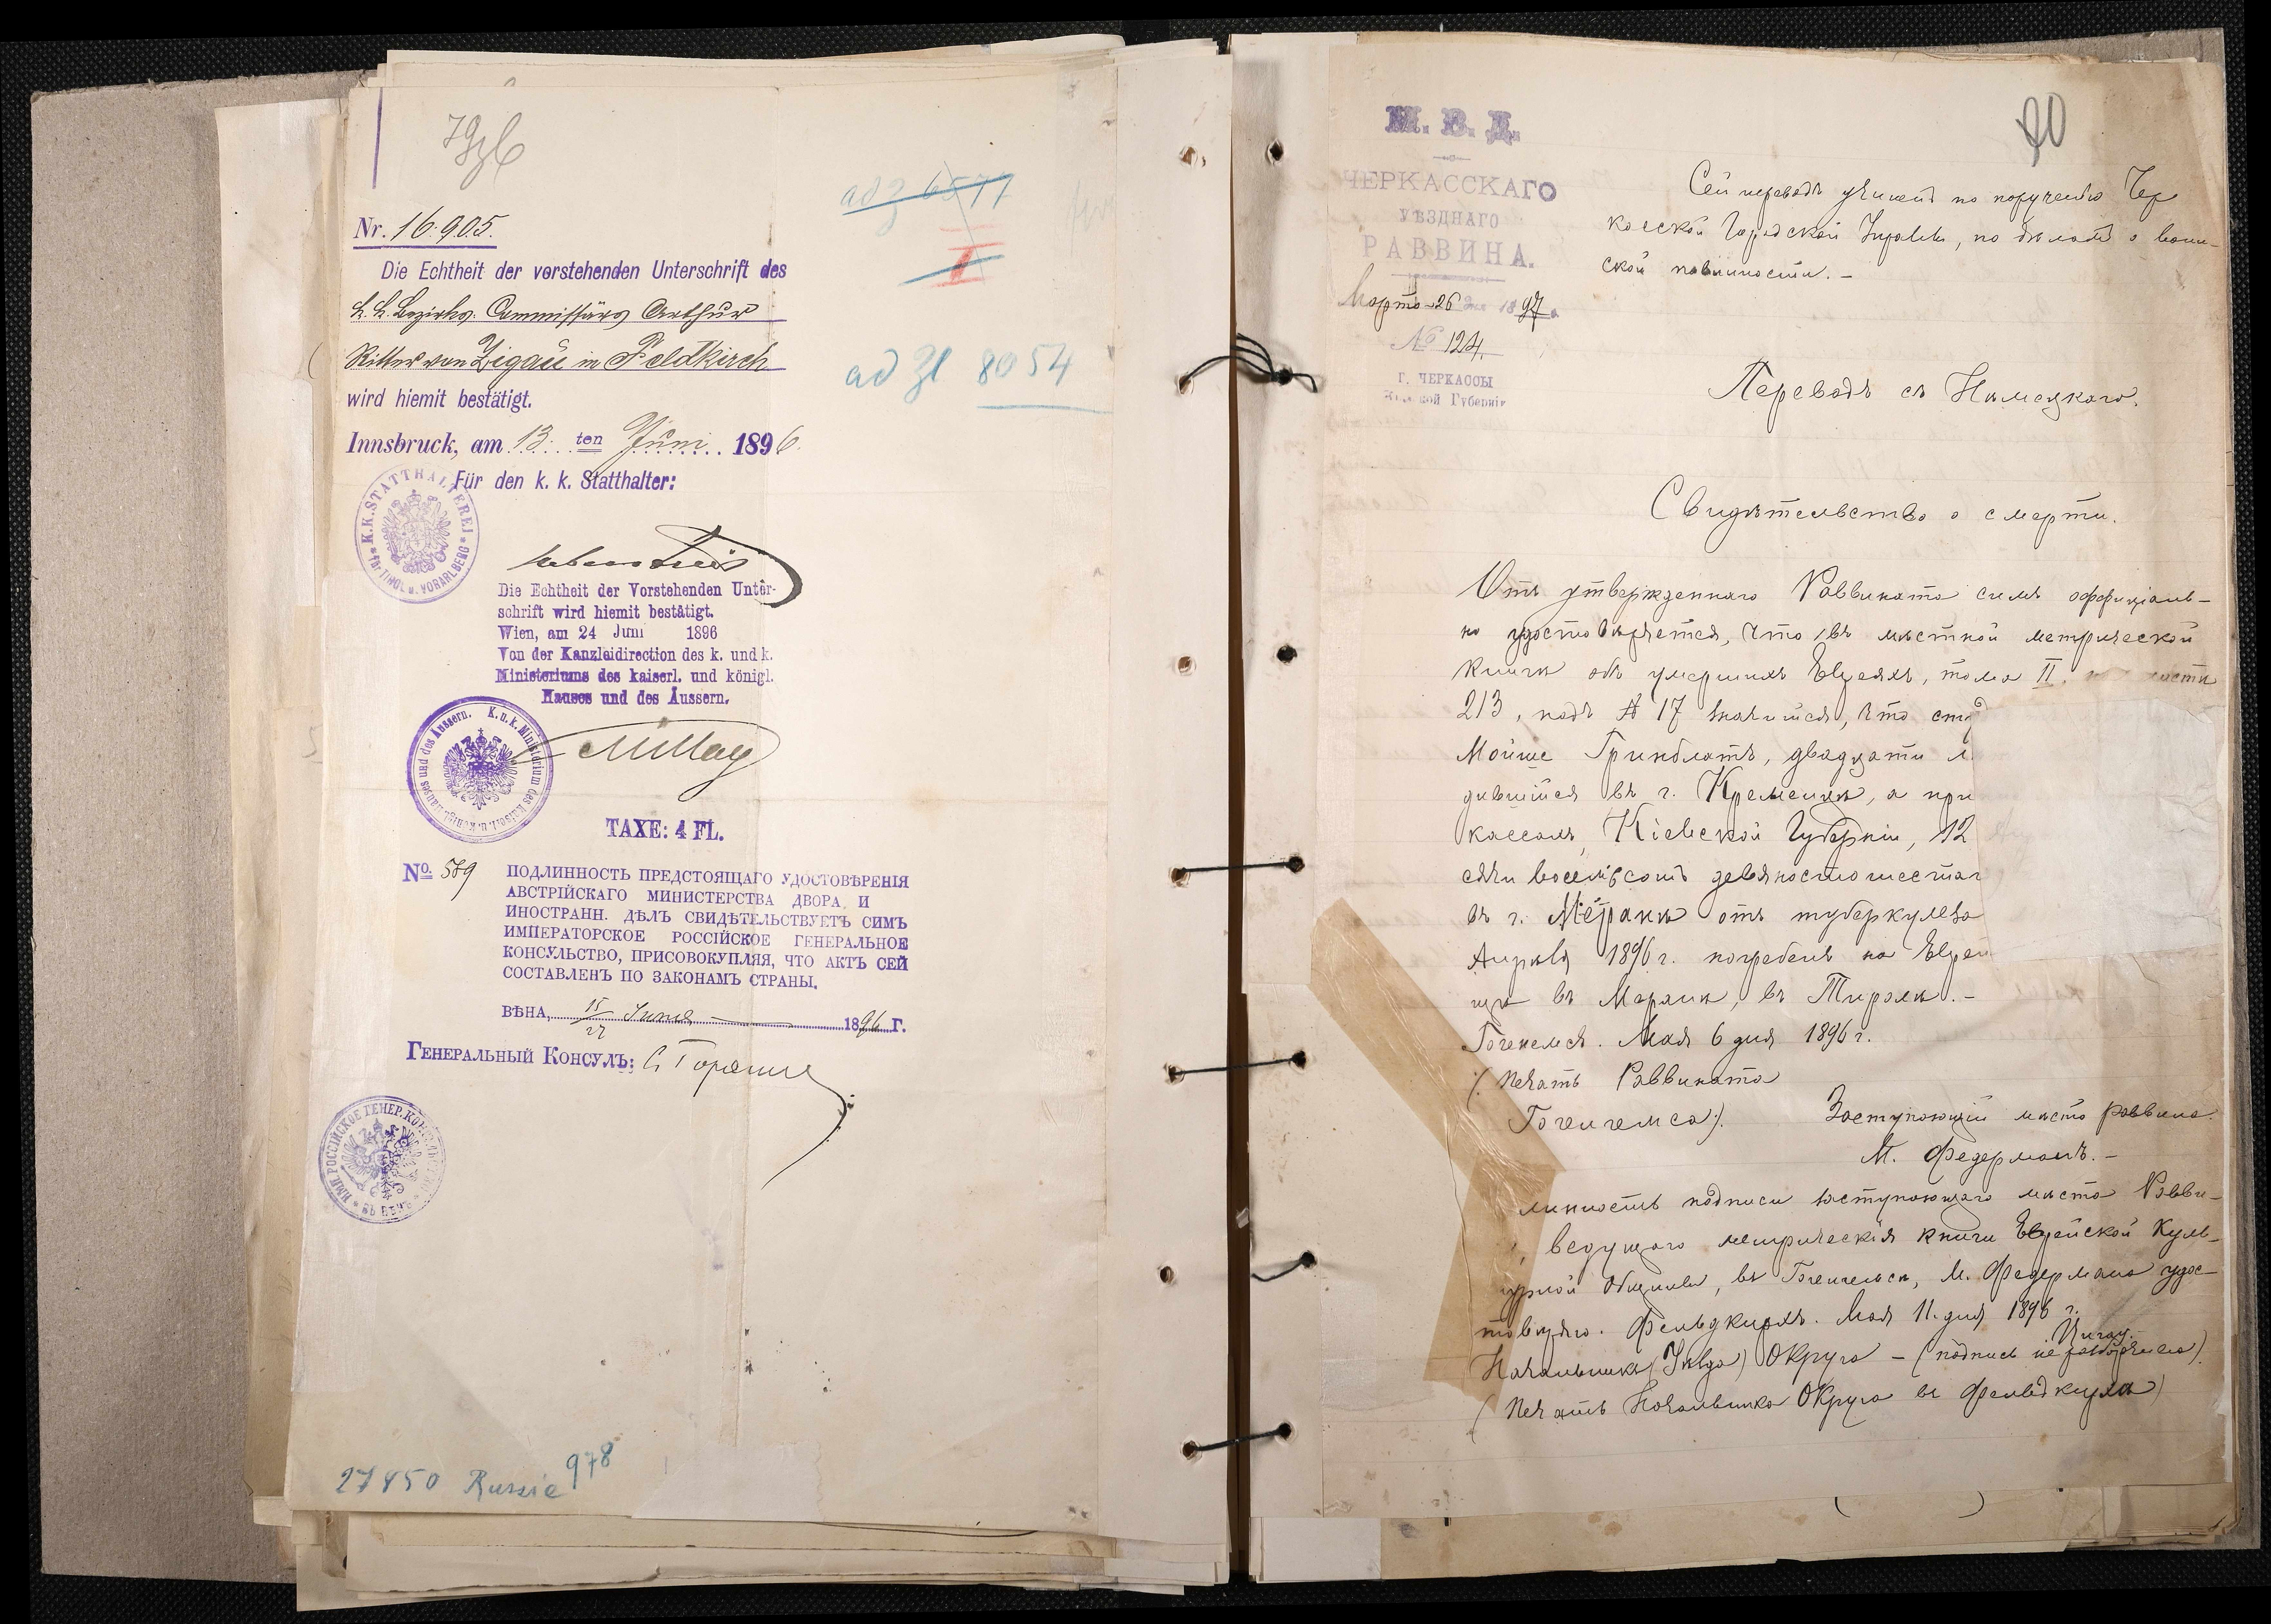 Nr. 16.905.
Die Echtheit der vorstehenden Unterschrift des
k. k. Bezirks Commissärs Arthur
Ritter von Zigau in Feldkirch
wird hiemit bestätigt.
Innsbruck, am 13. ten Juni 1896.
Für den k. k. Statthalter:
K. K. STATTHALTEREI * für TIROL u. VORARLBERG *
Die Echtheit der Vorstehenden Unter-
schrift wird hiemit bestätigt.
Wien, am 24 Juni 1896
Von der Kanzleidirection des k. und k.
Ministeriums des kaiserl. und königl.
Hauses und des Äussern.
K. u. k. Ministerium des Kaiserl. u. Königl. Hauses und des Äussern.
TAXE: 4 FL.
No. 589
ПОДЛИННОСТЬ ПРЕДСТОЯЩАГО УДОСТОВѢРЕНІЯ
АВСТРІЙСКАГО МИНИСТЕРСТВА ДВОРА И
ИНОСТРАНН. ДѢЛЪ СВИДѢТЕЛЬСТВУЕТЪ СИМЪ
ИМПЕРАТОРСКОЕ РОССІЙСКОЕ ГЕНЕРАЛЬНОЕ
КОНСУЛЬСТВО, ПРИСОВОКУПЛЯЯ, ЧТО АКТЪ СЕЙ
СОСТАВЛЕНЪ ПО ЗАКОНАМЪ СТРАНЫ.
ВѢНА, 15/27 Іюня 1896 Г.
ГЕНЕРАЛЬНЫЙ КОНСУЛЪ:
ИМП. РОССІЙСКОЕ ГЕНЕР. КОНСУЛЬСТВО * ВЪ ВѢНѢ *
27450 Russie 978
ad z 6577
I
ad Zl 8054
М. В. Д.
ЧЕРКАССКАГО
УѢЗДНАГО
РАВВИНА.
Марта 26 дня 1897 г.
№ 124.
Г. ЧЕРКАССЫ
Кіевской Губерніи
Сей переводъ учиненъ по порученію Чер
касской Городской Управы, по дѣламъ о воин-
ской повинности. -
Переводъ съ Нѣмецкаго.
Свидѣтельство о смерти.
Отъ утвержденнаго Раввината симъ оффиціаль-
но удостовѣряется, что въ мѣстной метрической
книгѣ объ умершихъ Евреяхъ, тома II.
213, подъ № 17 значится, что
Мойше Гринблатъ, двадцати л
дившійся въ г. Кременцѣ, а при
кассамъ, Кіевской Губерніи, 12
сячи восемьсотъ девяностошестаг
въ г. Меранѣ отъ туберкулеза
Апрѣля 1896 г. погребенъ на Еврей
щѣ въ Меранѣ, въ Тиролѣ. -
Гогенемсъ. Мая 6 дня 1896 г.
(Печать Раввината
Гогенемса). Заступающій мѣсто раввина
М. Федерманъ. -
линность подписи заступающаго мѣсто Равви-
ведущаго метрическія книги Еврейской Куль-
турной Общины, въ Гогенемсѣ, М. Федермана удос-
товѣряю. Фельдкирхъ. Мая 11 дня 1896 г.
Начальникъ (Уѣзда) Округа - (подпись не разборчива) Цигау.
(Печать Начальника Округа въ Фельдкирхѣ)